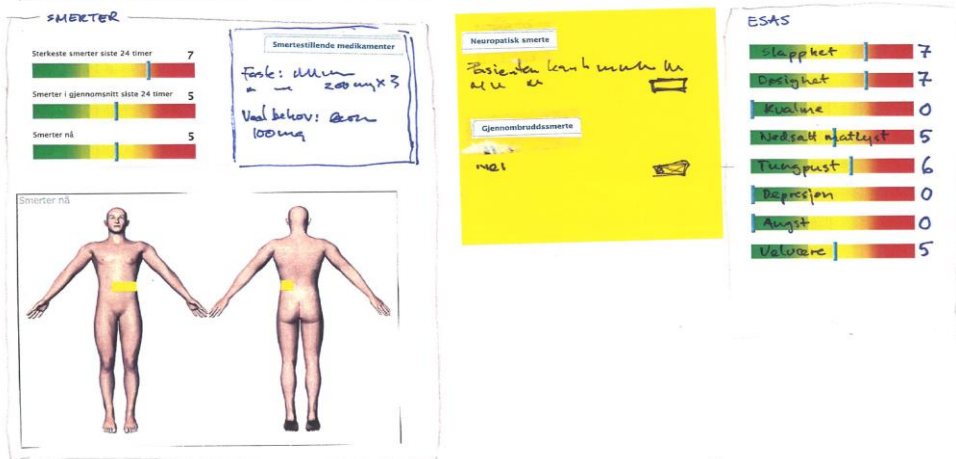 SMERTER
Sterkeste smerter siste 24 timer 7
Smerter i gjennomsnitt siste 24 timer 5
Smerter nå 5
Smertestillende medikamenter
Fast:
200mg x 3
Ved behov:
100mg
Smerter nå
Neuropatisk smerte
Pasienten
Gjennombruddssmerte
ESAS
Slapphet 7
Døsighet 7
Kvalme 0
Nedsatt matlyst 5
Tungpust 6
Depresjon 0
Angst 0
Velvære 5